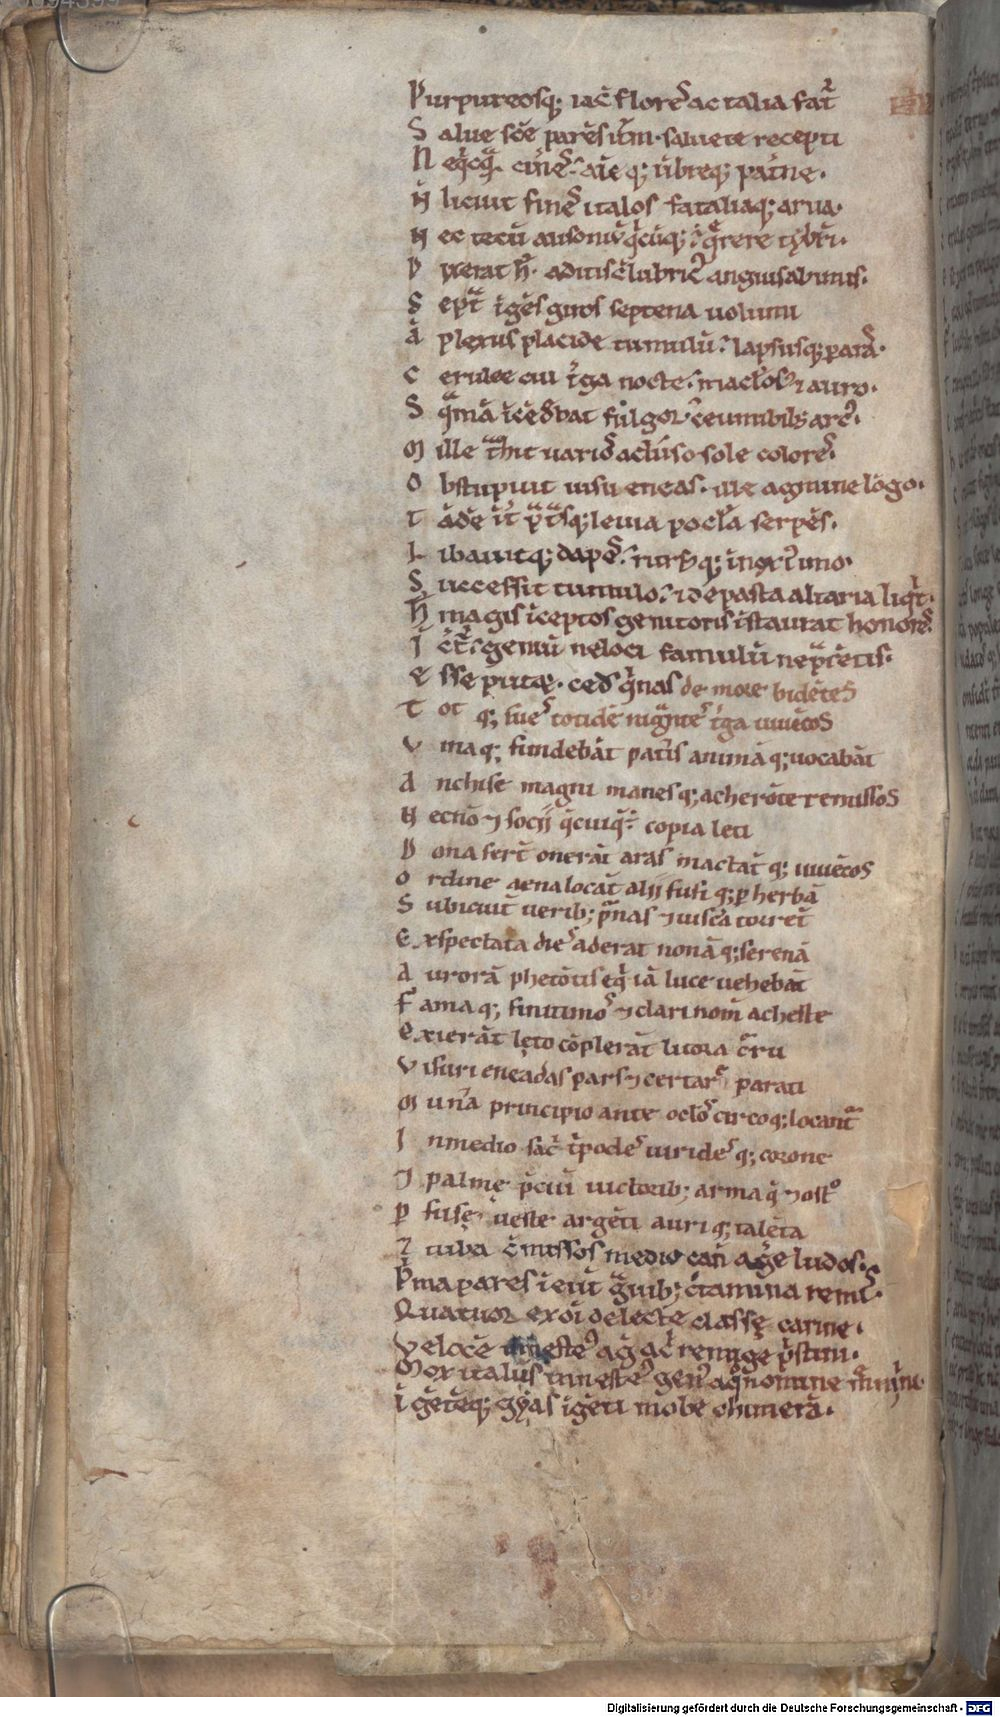 Purpureosq; iac̄ flores ac talia fat᷑
S alue sc̄e parēs it̄m. saluete recepti
N eq̇cq̄. cineres aīe q; ūbreq; pat̄ne.
N̄ licuit fines italos fataliaq; arua.
N ec tecū ausoniū q̇cūq; ē q̄rere tybrī.
D ixerat h̄. aditis c̄ lubric᷑ anguis ab imis.
S ept̄ īgēs giros septena uolumi
ā plexus placide tumulū. lapsusq; p aras.
C erulee cui t̄ga note. maclos᷑ ⁊ auro.
S q̄mā īcēdebat fulgor. ceu nubib; arc᷑.
M ille t̄hit uarios aduso sole colores.
O bstupuit uisu eneas. ille agmine lōgo.
T ādē īt̄ pat̄asq; leuia pocl̄a serpēs.
L ibauitq; dapes. rursq; inoxi᷑ imo.
S uccessit tumulo. ⁊ depasta altaria liq̄t.
H̄ magis īceptos genitoris īstaurat honores.
I c̄t᷑ geniū ne loci famulū ne p̄cētis.
e sse putæ. cedt q̇nas de more bidētes
T ot q; sues totidē nig̃ntes t̄ga iuuēcos
V ina q; fundebāt pat̄is animā q; uocabāt
A nchise magni manesq; acherōte remissos
N ecnō ⁊ socii q̄ cuiq. copia leti
D ona ferūt onerāt aras mactāt q; iuuēcos
O rdine aena locāt alii fusi q; p herbā
S ubiciūt uerib; p̄nas ⁊ uiscā torrēt
E xspectata dies aderat nonā q; serenā
A urorā phetōtis eq̇ iā luce uehebāt
F ama q; finitimos ⁊ clari nom̄ acheste
E xierāt leto cōplerāt litora c̄tu
V isuri eneadas pars ⁊ certare parati
M un̄a principio ante oclōs circoq; locant᷑
I n medio sac̄ tripodes uirides q; corone
⁊ palme p̄ciū uictorib; arma q; ⁊ ost᷑o
p fuse ueste argēti auri q; talēta
⁊ tuba c̄missos medio canīt aḡe ludos.
P̄ma pares ineūt g̃uib; c̄tamina remis.
Quatuor ex oī delecte classe carine.
Velocē mnesteus agit ac̄ remige p̄stim.
Mox italus mnesteus gen᷑ a q̊ nomine
īgētēq; gyas īgēti mole chimerā.
Digitalisierung gefördert durch die Deutsche Forschungsgemeinschaft - DFG